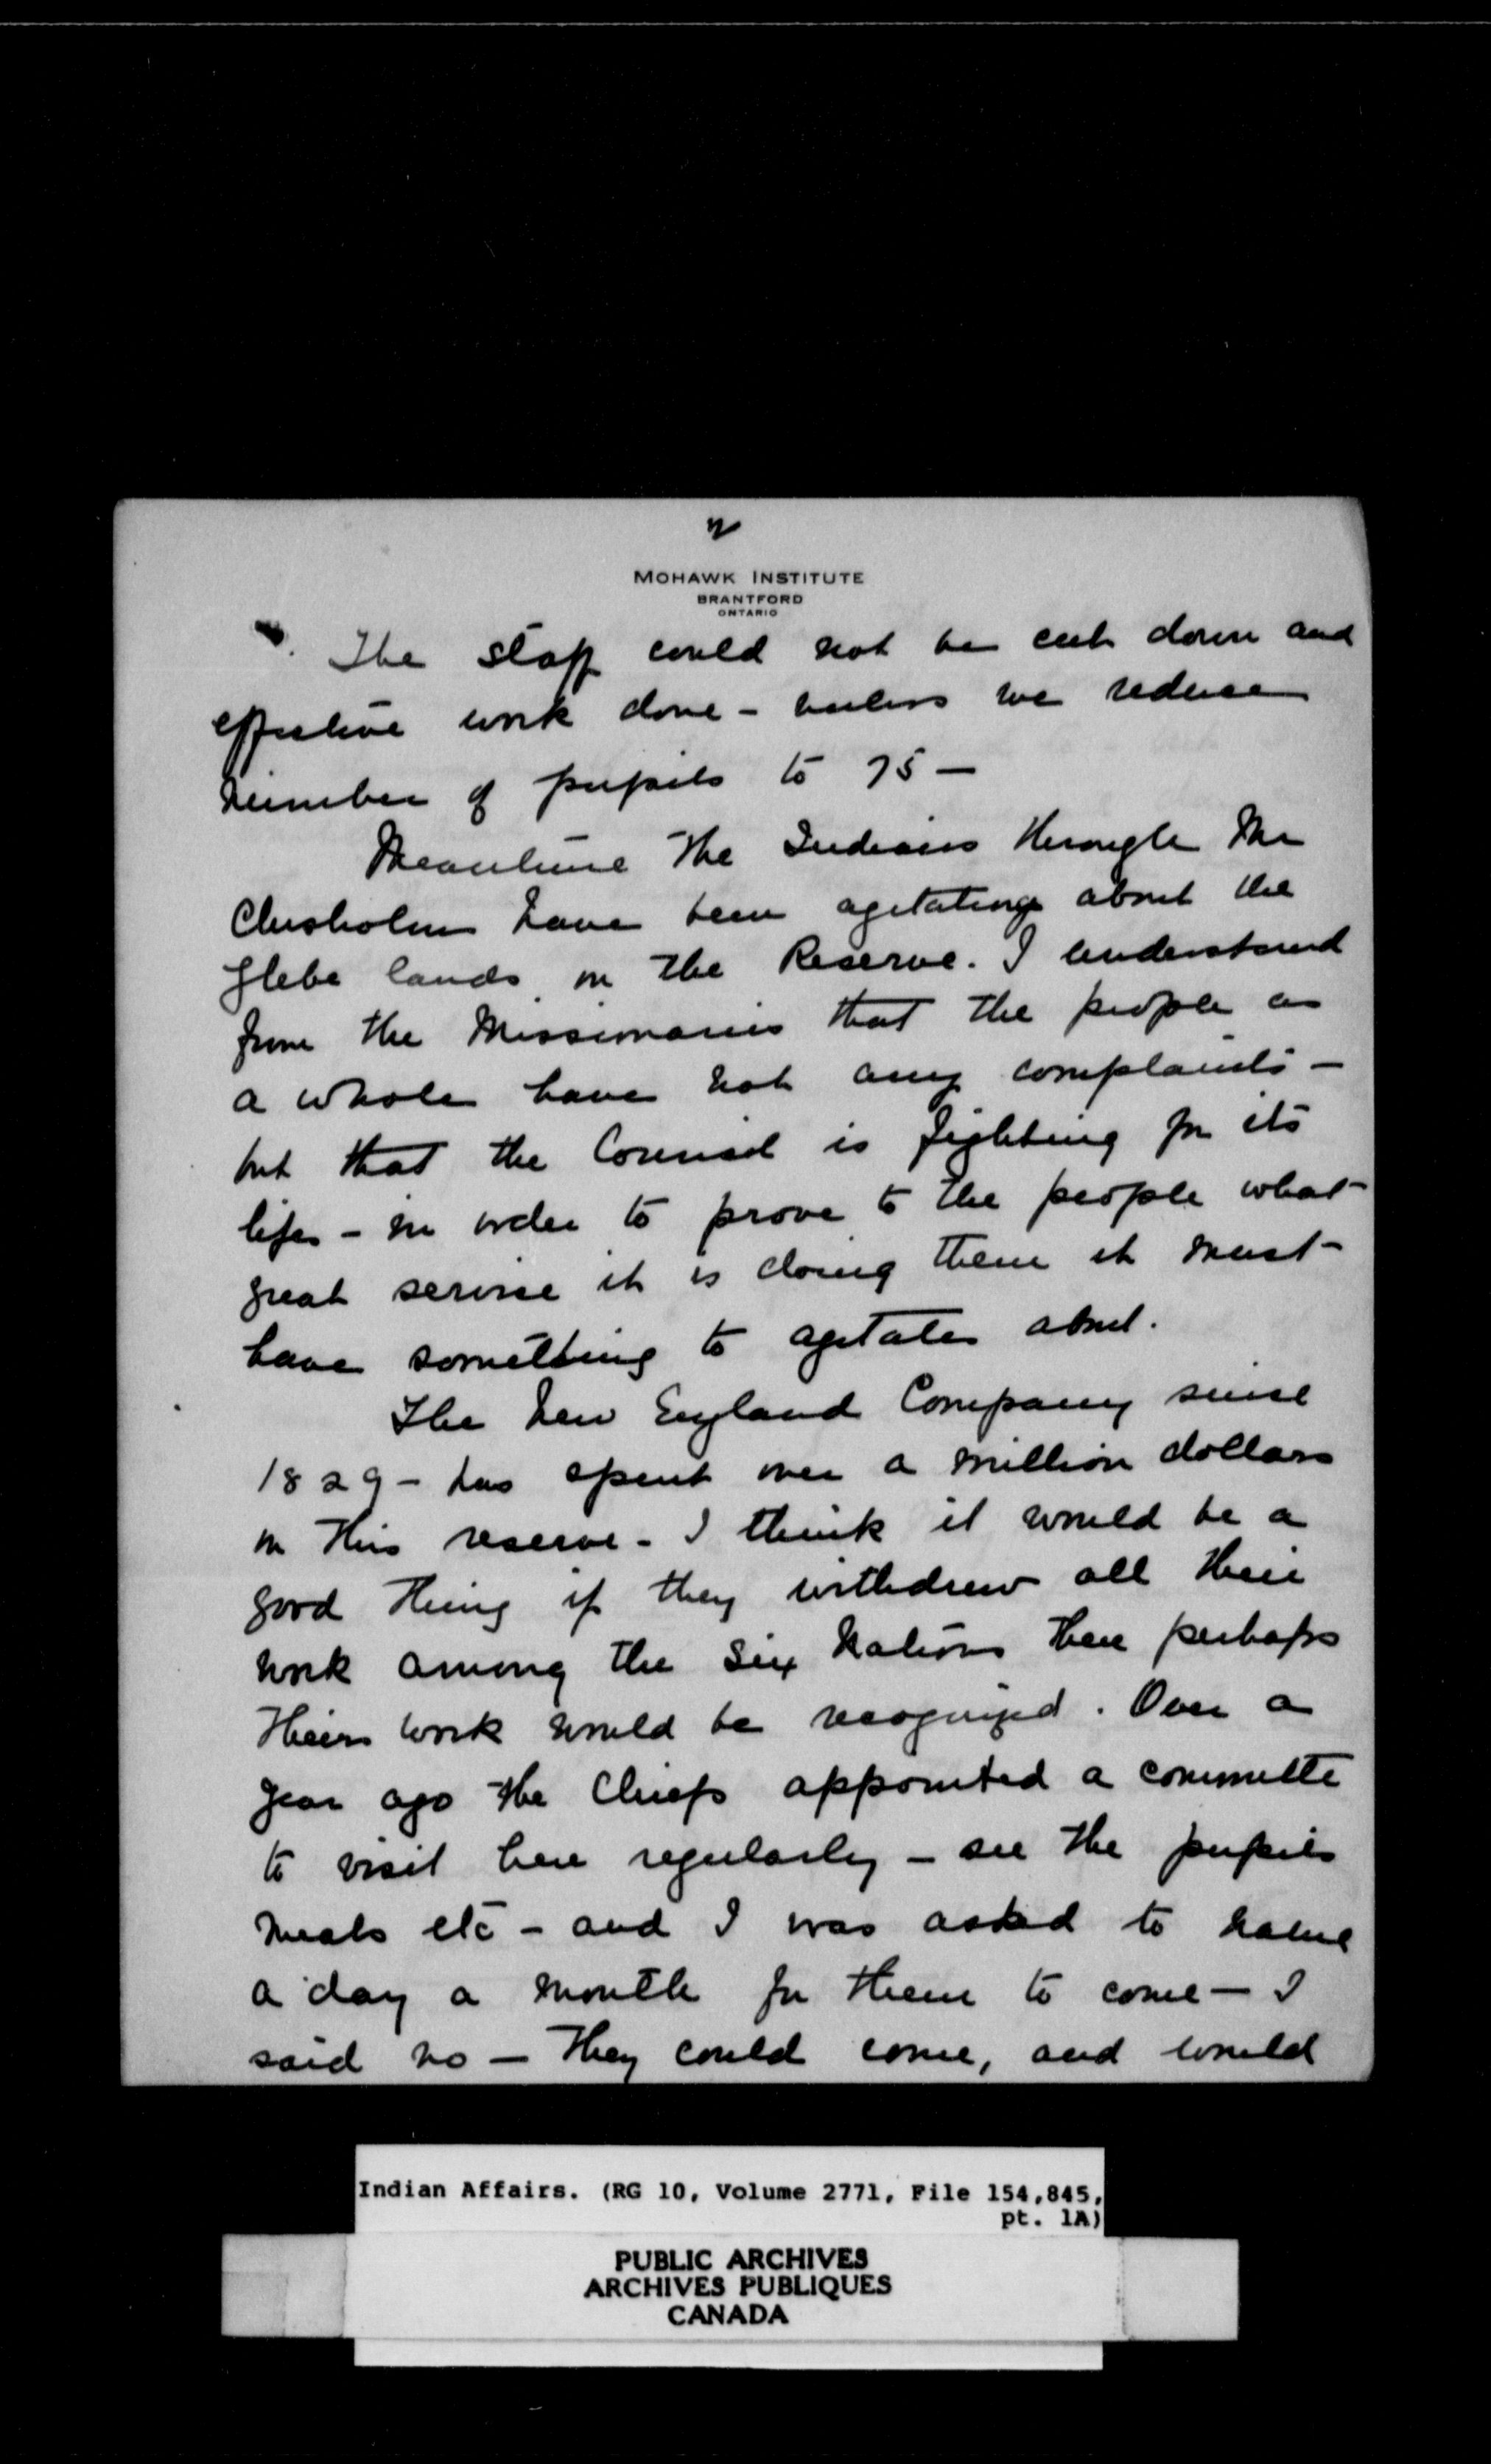 MOHAWK INSTITUTE
BRANTFORD
ONTARIO
The staff could not be cut down and
effective work done - unless we reduce
number of pupils to 75 -
Meantime the Indians through Mr
Chisholm have been agitating about the
Glebe lands on the Reserve. I understand
from the Missionaries that the people as
a whole have not any complaints -
but that the Council is fighting for its
life - in order to prove to the people what
great service it is doing them it must
have something to agitate about.
The New England Company since
1829 - has spent over a million dollars
on this reserve - I think it would be a
good thing if they withdrew all their
work among the Six Nations then perhaps
their work would be recognized. Over a
year ago the Chiefs appointed a committe
to visit here regularly - see the pupils
meals etc - and I was asked to name
a day a month for them to come - I
said no - they could come, and would
Indian Affairs. (RG 10, Volume 2771, File 154,845,
pt. 1A)
PUBLIC ARCHIVES
ARCHIVES PUBLIQUES
CANADA